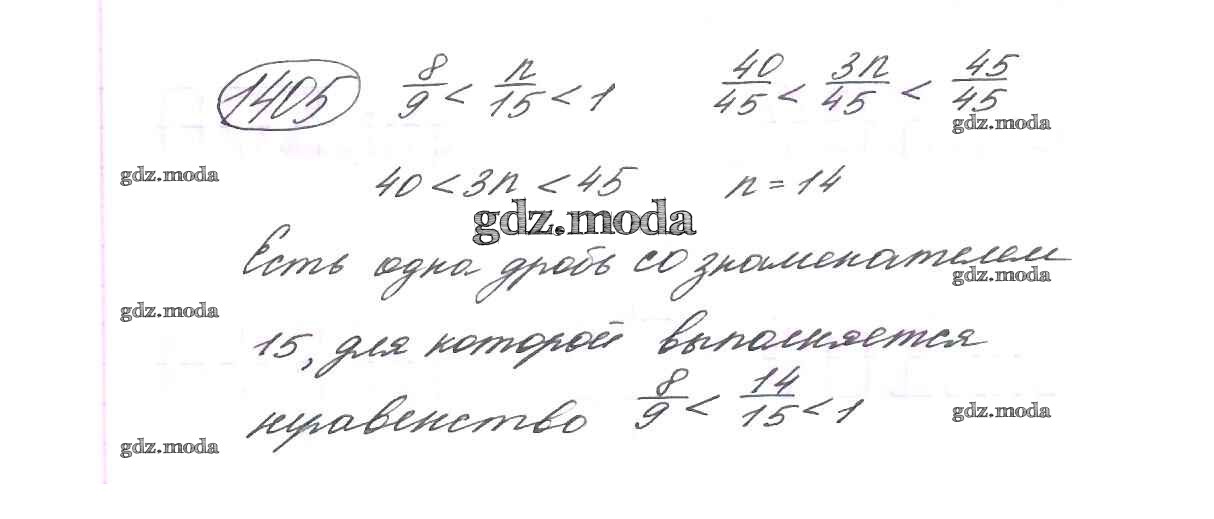 1405 8/9 < n/15 < 1 40/45 < 3n/45 < 45/45
gdz.moda
gdz.moda
40 < 3n < 45 n = 14
gdz.moda
Есть одна дробь со знаменателем
gdz.moda
gdz.moda
15, для которой выполняется
неравенство 8/9 < 14/15 < 1
gdz.moda
gdz.moda